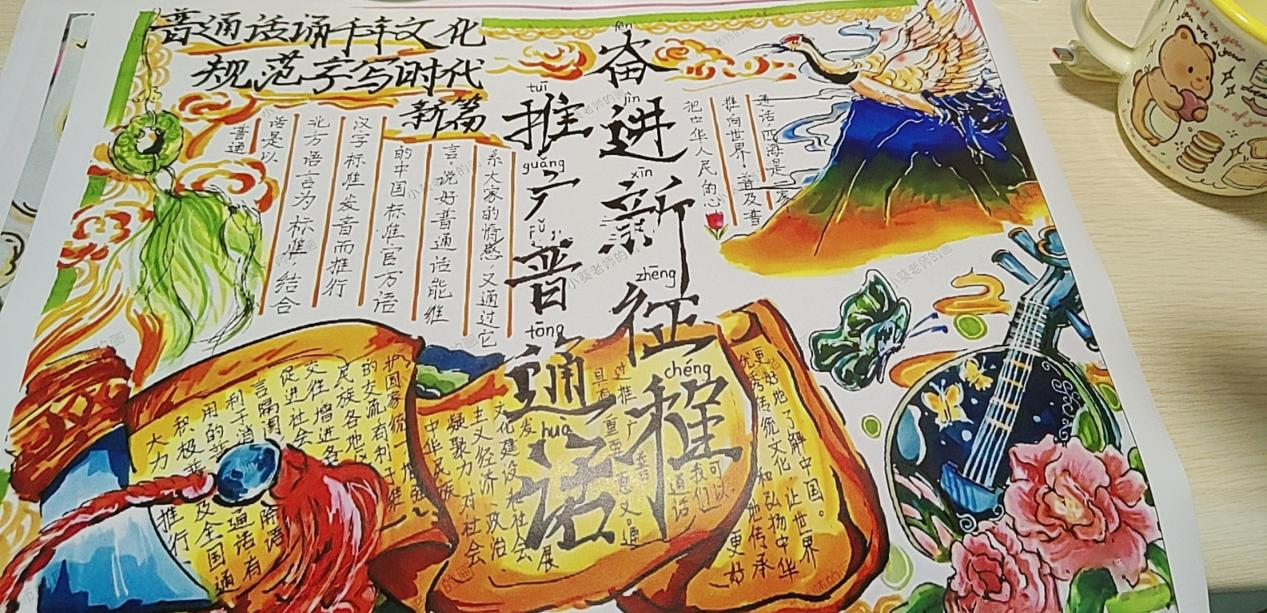 普通话诵千年文化
规范字写时代
新篇
tuī
推
guǎng
广
pǔ
普
tōng
通
huà
话
fèn
奋
jìn
进
xīn
新
zhēng
征
chéng
程
普通
话是以
北方语言为标准,结合
汉字标准发音而推行
的中国标准官方语
言,说好普通话能维
系大家的情感,又通过它
把中华人民的心
推向世界,普及普
通话,四海是一家
大力推行
积极普及全国通
用的普通话有
利于消
言隔阂
促进社会
交往,增进各
民族各地
的交流,有利于
护国家统一,增强
中华民族
凝聚力,对社会
主义经济,政治
文化建设和社会
发展
具有重要意义,通
过推广普
通话
我们可以
更好地了解中国。
优秀传统文化
让世界
和弘扬中华
更好
地传承
小葵老师的画